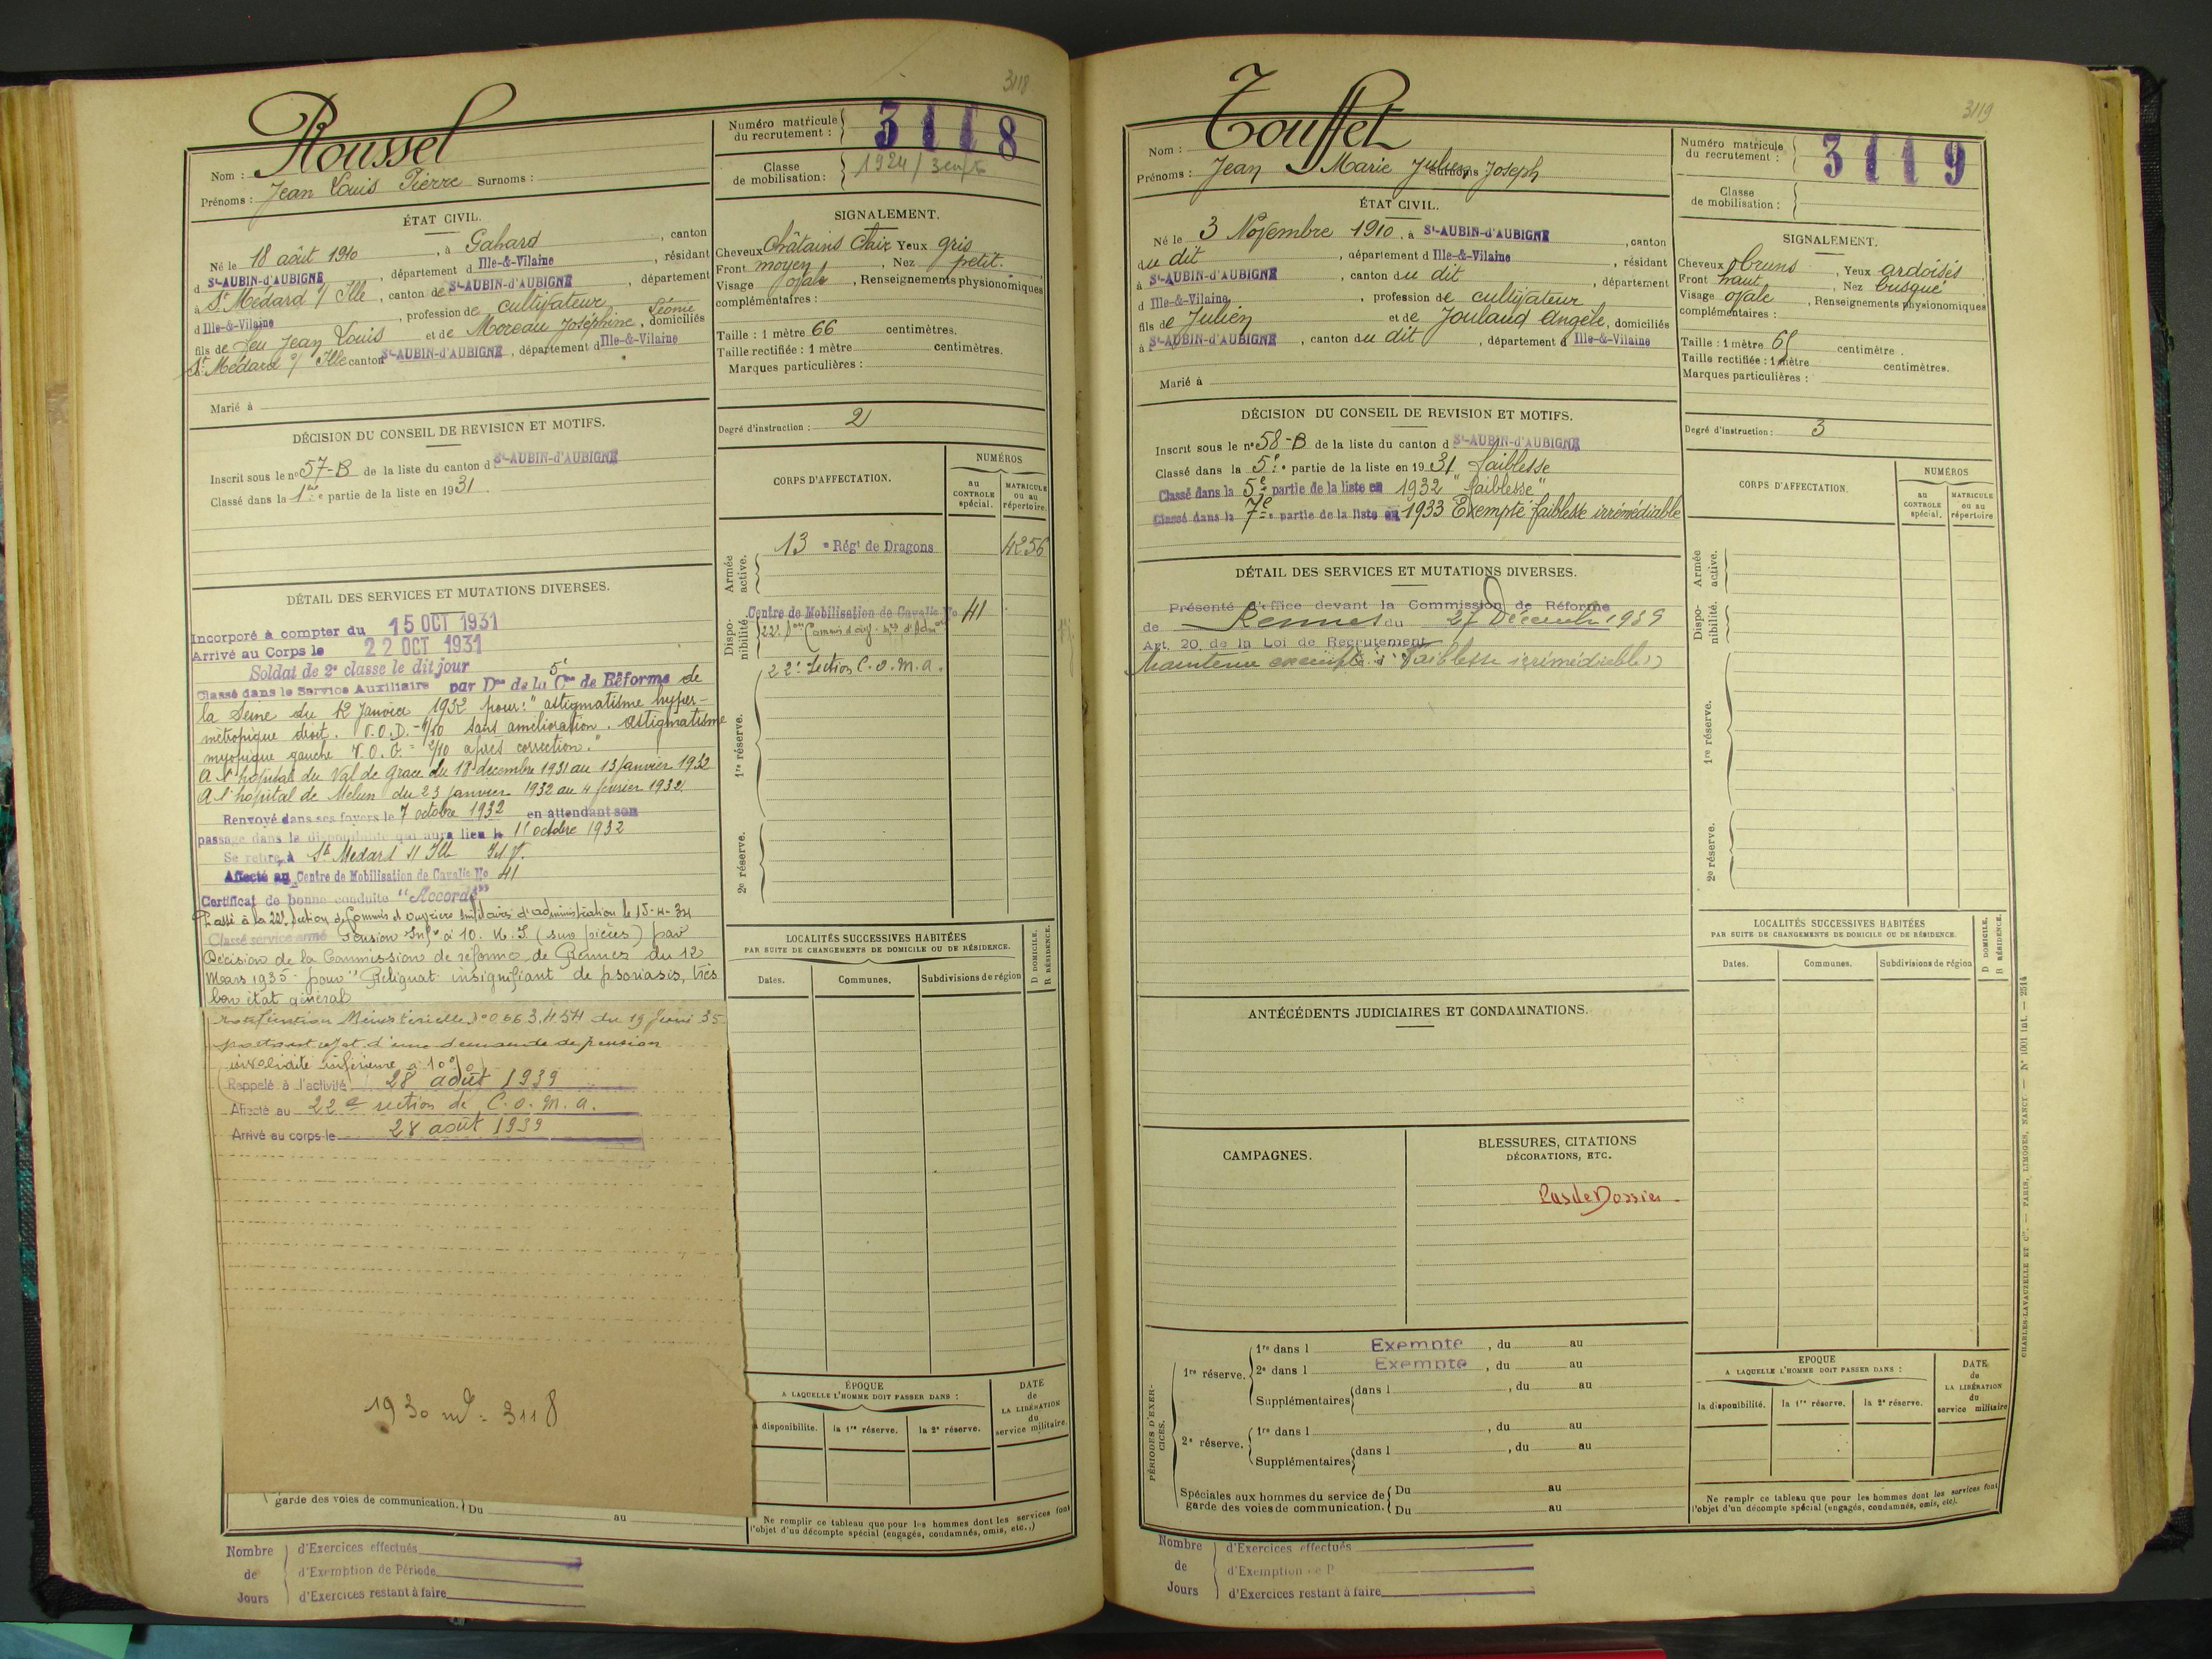 3118
Roussel
Nom :
Prénoms : Jean Louis Pierre Surnoms :
Numéro matricule du recrutement : 3118
Classe de mobilisation : 1924/
ÉTAT CIVIL.
Né le 18 août 1910, à Gahard, canton
d St-AUBIN-d'AUBIGNÉ, département d Ille-&-Vilaine, résidant
à St Médard s/ Ille, canton de St-AUBIN-d'AUBIGNÉ, département
d Ille-&-Vilaine, profession de cultivateur
fils de feu Jean Louis et de Moreau Joséphine Léonie, domiciliés
St Médard s/ Ille canton St-AUBIN-d'AUBIGNÉ, département d Ille-&-Vilaine
Marié à
SIGNALEMENT.
Cheveux châtains clair Yeux gris
Front moyen, Nez petit.
Visage ovale, Renseignements physionomiques
complémentaires :
Taille : 1 mètre 66 centimètres.
Taille rectifiée : 1 mètre centimètres.
Marques particulières :
Degré d'instruction : 2
DÉCISION DU CONSEIL DE REVISION ET MOTIFS.
Inscrit sous le no 57-B de la liste du canton d St-AUBIN-d'AUBIGNÉ
Classé dans la 1ère partie de la liste en 1931.
DÉTAIL DES SERVICES ET MUTATIONS DIVERSES.
Incorporé à compter du 15 OCT 1931
Arrivé au Corps le 22 OCT 1931
Soldat de 2e classe le dit jour
Classé dans le Service Auxiliaire par Don de la 5e Con de Réforme de
la Seine du 12 Janvier 1932 pour : "astigmatisme hyper-
métropique droit. V.O.D. - /10 sans amélioration. Astigmatisme
myopique gauche V.O.G = /10 après correction."
A l'hôpital du Val de Grace du 18 décembre 1931 au 13 janvier 1932
A l'hôpital de Melun du 23 janvier 1932 au 4 février 1932
Renvoyé dans ses foyers le 7 octobre 1932 en attendant son
passage dans la disponibilité qui aura lieu le octobre 1932
Se retire à St Médard s/ Ille I et V.
Affecté au Centre de Mobilisation de Cavalie No 41
Certificat de bonne conduite "Accordé"
Passé à la 22e Section de Commis et Ouvriers militaires d'administration le 15-4-34
Classé service armé Pension Infre à 10. (sur pièces) par
Décision de la Commission de réforme de Rennes du 12
Mars 1935 pour "Reliquat insignifiant de psoriasis, très
bon état général
notification Ministérielle no 0663.454 du 19 Juin 35
portant rejet d'une demande de pension
invalidité inférieure à 10%
Rappelé à l'activité 28 août 1939
Affecté au 22e section de C.O.M.A.
Arrivé au corps le 28 août 1939
1930 3118
garde des voies de communication. Du au
Nombre de Jours
d'Exercices effectués
d'Exemption de Période
d'Exercices restant à faire
CORPS D'AFFECTATION.
NUMÉROS
au CONTROLE spécial.
MATRICULE ou au répertoire.
Armée active.
13e Régt de Dragons 4256
Disponibilité.
Centre de Mobilisation de Cavalie No 41
22e Son Commis d'Adm
22e Section C.O.M.A.
1re réserve.
2e réserve.
LOCALITÉS SUCCESSIVES HABITÉES
PAR SUITE DE CHANGEMENTS DE DOMICILE OU DE RÉSIDENCE.
Dates.
Communes.
Subdivisions de région
D DOMICILE.
R RÉSIDENCE.
ÉPOQUE
A LAQUELLE L'HOMME DOIT PASSER DANS :
disponibilité.
la 1re réserve.
la 2e réserve.
DATE de LA LIBÉRATION du service militaire.
Ne remplir ce tableau que pour les hommes dont les services font
l'objet d'un décompte spécial (engagés, condamnés, omis, etc..)
3119
Touffet
Nom :
Prénoms : Jean Marie Julien Surnoms : Joseph
Numéro matricule du recrutement : 3119
Classe de mobilisation :
ÉTAT CIVIL.
Né le 3 Novembre 1910, à St-AUBIN-d'AUBIGNÉ, canton
du dit, département d Ille-&-Vilaine, résidant
à St-AUBIN-d'AUBIGNÉ, canton du dit, département
d Ille-&-Vilaine, profession de cultivateur
fils de Julien et de Jouland Angèle, domiciliés
à St-AUBIN-d'AUBIGNÉ, canton du dit, département d Ille-&-Vilaine
Marié à
SIGNALEMENT.
Cheveux bruns, Yeux ardoisés
Front haut, Nez busqué
Visage ovale, Renseignements physionomiques
complémentaires :
Taille : 1 mètre centimètre.
Taille rectifiée : 1 mètre centimètres.
Marques particulières :
Degré d'instruction : 3
DÉCISION DU CONSEIL DE REVISION ET MOTIFS.
Inscrit sous le no 58-B de la liste du canton d St-AUBIN-d'AUBIGNÉ
Classé dans la 5e partie de la liste en 1931 faiblesse
Classé dans la 5e partie de la liste en 1932 "faiblesse"
Classé dans la 7e partie de la liste en 1933 Exempté faiblesse irrémédiable
DÉTAIL DES SERVICES ET MUTATIONS DIVERSES.
Présenté d'office devant la Commission de Réforme
de Rennes du 27 Décembre 1939
Art. 20 de la Loi de Recrutement
Maintenu exempté : "faiblesse irrémédiable"
ANTÉCÉDENTS JUDICIAIRES ET CONDAMNATIONS.
CAMPAGNES.
BLESSURES, CITATIONS
DÉCORATIONS, ETC.
Pas de Dossier.
PÉRIODES D'EXERCICES.
1re réserve.
1re dans l Exempté, du au
2e dans l Exempté, du au
Supplémentaires dans l , du au
, du au
2e réserve.
1re dans l , du au
Supplémentaires dans l , du au
Spéciales aux hommes du service de garde des voies de communication.
Du au
Du au
Nombre de Jours
d'Exercices effectués
d'Exemption de P
d'Exercices restant à faire
CORPS D'AFFECTATION.
NUMÉROS
au CONTROLE spécial.
MATRICULE ou au répertoire
Armée active.
Disponibilité.
1re réserve.
2e réserve.
LOCALITÉS SUCCESSIVES HABITÉES
PAR SUITE DE CHANGEMENTS DE DOMICILE OU DE RÉSIDENCE.
Dates.
Communes.
Subdivisions de région
D DOMICILE.
R RÉSIDENCE.
EPOQUE
A LAQUELLE L'HOMME DOIT PASSER DANS :
la disponibilité.
la 1re réserve.
la 2e réserve.
DATE de LA LIBÉRATION du service militaire
Ne remplir ce tableau que pour les hommes dont les services font
l'objet d'un décompte spécial (engagés, condamnés, omis, etc).
CHARLES-LAVAUZELLE ET Cie. — PARIS, LIMOGES, NANCY — N° 1001 int. — 2514